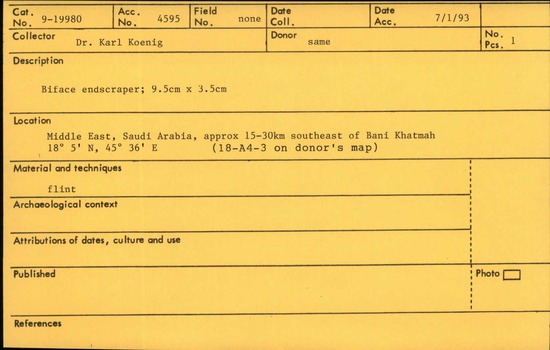 Cat. No. 9-19980 Acc. No. 4595 Field No. none Date Coll. Date Acc. 7/1/93
Collector Dr. Karl Koenig Donor same No. Pcs. 1
Description
Biface endscraper; 9.5cm x 3.5cm
Location
Middle East, Saudi Arabia, approx 15-30km southeast of Bani Khatmah
18° 5' N, 45° 36' E (18-A4-3 on donor's map)
Material and techniques
flint
Archaeological context
Attributions of dates, culture and use
Published Photo
References